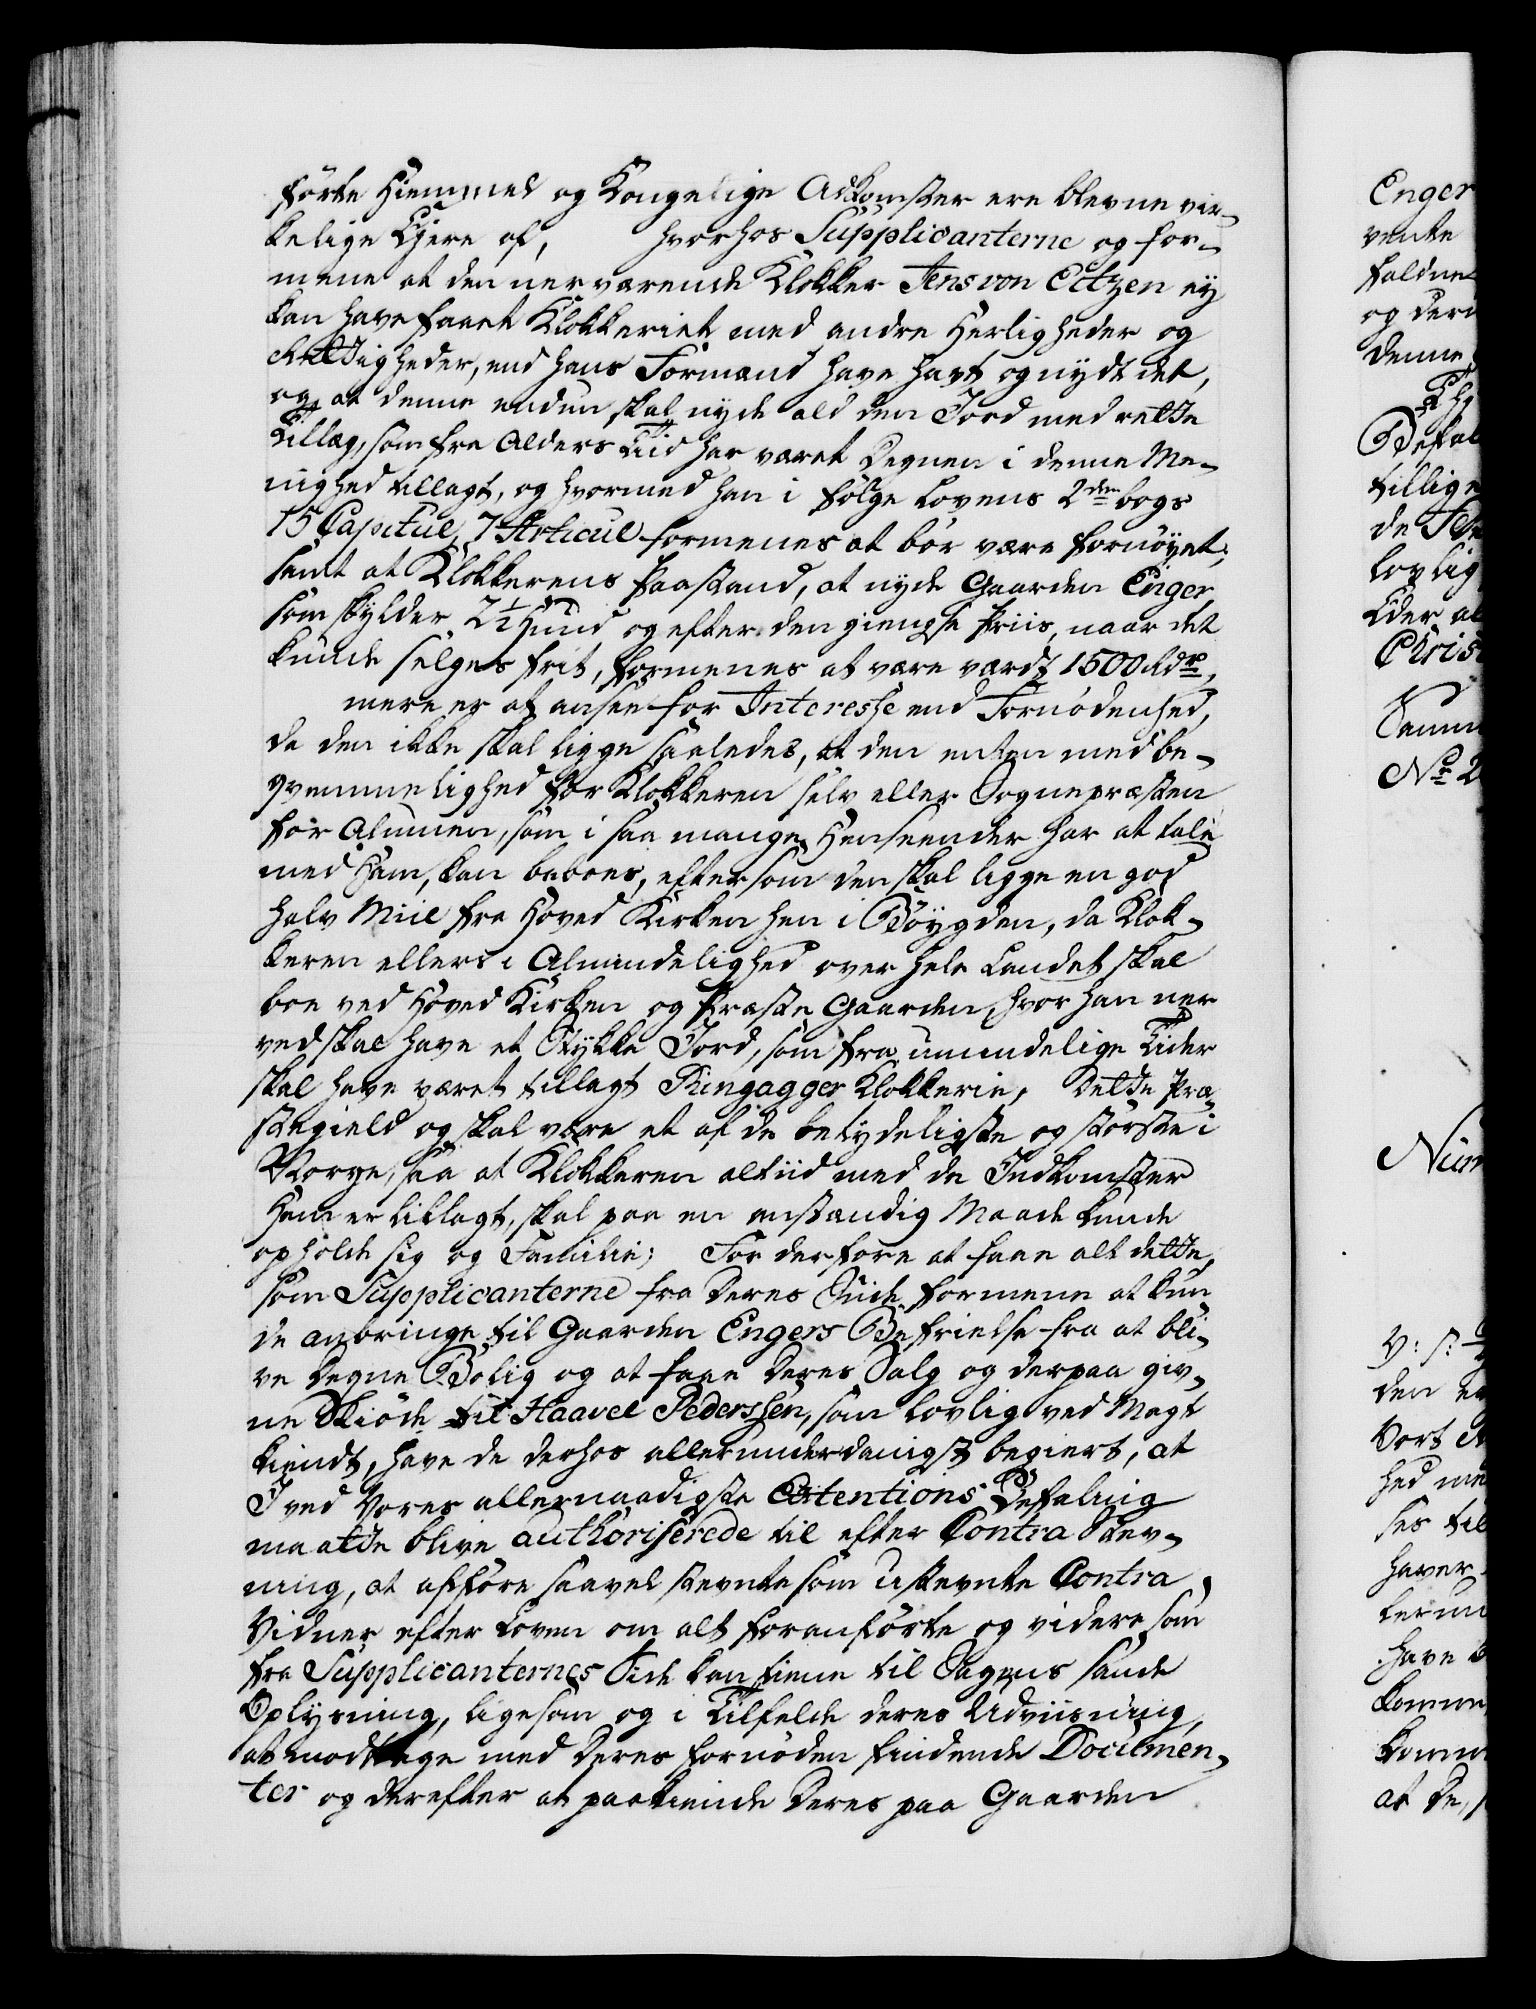 førte Hiemmel og Kongelige Adkomster ere blevne vir-
kelige Ejere af, hvorhos Supplicanterne og for-
mene at den nerværende Klokker Jens von Eitzen ey
kan have faaet Klokkeriet med andre Herligheder og
Rettigheder, end hans Formænd have havt og nydt det,
og at denne endun skal nyde ald den Jord med rette
Tillæg, som fra Alders Tid har været Degnen i denne Me-
nighed tillagt, og hvormed han i Følge Lovens 2den bogs
15 Capitul 7 Articul formenes at bør være fornøyet;
samt at Klokkerens Paastand, at nyde Gaarden Enger,
som skylder 2½ Hund og efter den giengse Priis, naar det
kunde selges frit, formenes at være værdt 1500 Rdr,
mere er at ansee for Interesse end Fornødenhed,
da den ikke skal ligge saaledes, at den enten med be-
qvemmelighed for Klokkeren selv eller Sognepræsten
for Almuen, som i saa mange Henseender har at tale
med Ham, kan beboes, eftersom den skal ligge en god
halv Miil fra Hoved Kirken hen i Bøygden, da Klok-
keren ellers i Almindelighed over hele Landet skal
boe ved Hoved Kirken og Præste Gaarden, hvor han ner
ved skal have et Stykke Jord, som fra umindelige Tider
skal have været tillagt Ringagger Klokkerie, Dette Præ-
stegield og skal være et af de betydeligste og største i
Norge, saa at Klokkeren altiid med de Indkomster
Ham er tillagt, skal paa en anstændig Maade kunde
opholde sig og Familie; For derfore at faae alt dette,
som Supplicanterne fra Deres Side formene at kun-
de anbringe til Gaarden Engers Befrielse fra at bli-
ve Degne Bolig og at faae Deres Salg og derpaa giv-
ne Skiøde til Haavel Pederssen, som lovlig ved Magt
kiendt, have de derhos allerunderdanigst begiert, at
I ved Vores allernaadigste Extentions Befaling
maatte blive authoriserede til efter Contra Stev-
ning, at afføre saavel stevnte som ustevnte Contra
Vidner efter Loven om alt foranførte og videre som
fra Supplicanternes Side kan tiene til Sagens sande
Oplysning, ligesom og i Tilfelde deres Udviisning,
at modtage med Deres fornøden findende Documen-
ter og derefter at paakiende Deres paa Gaarden